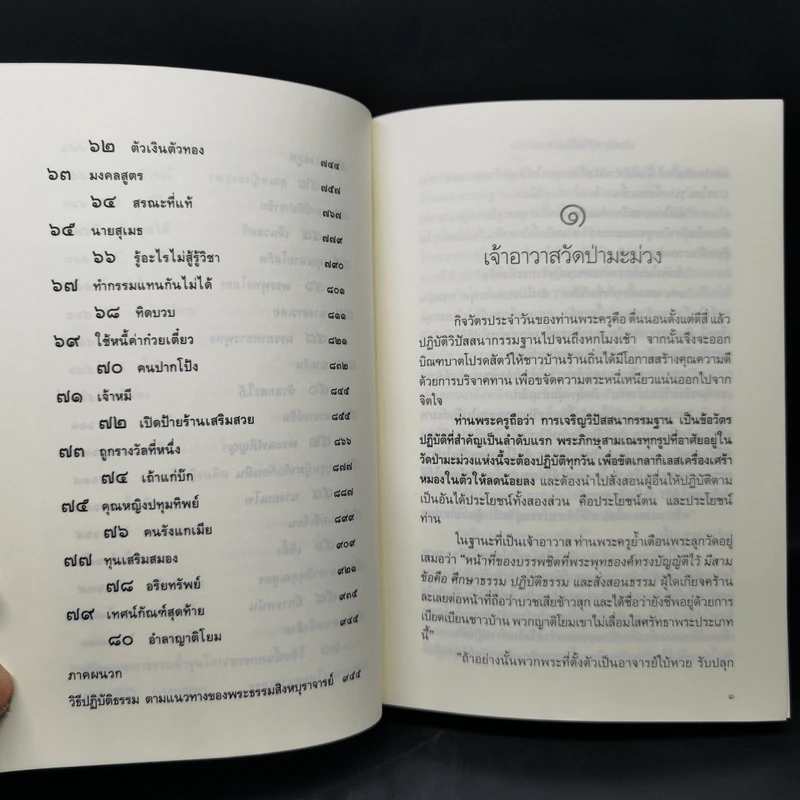 ๖๒ ตัวเงินตัวทอง ๗๔๔
๖๓ มงคลสูตร ๗๕๗
๖๔ สรณะที่แท้ ๗๖๗
๖๕ นายสุเมธ ๗๗๙
๖๖ รู้อะไรไม่สู้รู้วิชา ๗๙๐
๖๗ ทำกรรมแทนกันไม่ได้ ๘๐๑
๖๘ ทิดบวบ ๘๑๑
๖๙ ใช้หนี้ค่าก๋วยเตี๋ยว ๘๒๑
๗๐ คนปากโป้ง ๘๓๒
๗๑ เจ้าหมี ๘๔๔
๗๒ เปิดป้ายร้านเสริมสวย ๘๕๔
๗๓ ถูกรางวัลที่หนึ่ง ๘๖๖
๗๔ เถ้าแก่บ๊ก ๘๗๗
๗๕ คุณหญิงปทุมทิพย์ ๘๘๗
๗๖ คนรังแกเมีย ๘๙๙
๗๗ ทุนเสริมสมอง ๙๐๙
๗๘ อริยทรัพย์ ๙๒๑
๗๙ เทศน์กัณฑ์สุดท้าย ๙๓๔
๘๐ อำลาญาติโยม ๙๔๔
ภาคผนวก
วิธีปฏิบัติธรรม ตามแนวทางของพระธรรมสิงหบุราจารย์ ๙๕๕
๑
เจ้าอาวาสวัดป่ามะม่วง
กิจวัตรประจำวันของท่านพระครูคือ ตื่นนอนตั้งแต่ตีสี่ แล้ว
ปฏิบัติวิปัสสนากรรมฐานไปจนถึงหกโมงเช้า จากนั้นจึงจะออก
บิณฑบาตโปรดสัตว์ให้ชาวบ้านร้านถิ่นได้มีโอกาสสร้างคุณความดี
ด้วยการบริจาคทาน เพื่อขจัดความตระหนี่เหนียวแน่นออกไปจาก
จิตใจ
ท่านพระครูถือว่า การเจริญวิปัสสนากรรมฐาน เป็นข้อวัตร
ปฏิบัติที่สำคัญเป็นลำดับแรก พระภิกษุสามเณรทุกรูปที่อาศัยอยู่ใน
วัดป่ามะม่วงแห่งนี้จะต้องปฏิบัติทุกวัน เพื่อขัดเกลากิเลสเครื่องเศร้า
หมองในตัวให้ลดน้อยลง และต้องนำไปสั่งสอนผู้อื่นให้ปฏิบัติตาม
เป็นอันได้ประโยชน์ทั้งสองส่วน คือประโยชน์ตน และประโยชน์
ท่าน
ในฐานะที่เป็นเจ้าอาวาส ท่านพระครูย้ำเตือนพระลูกวัดอยู่
เสมอว่า "หน้าที่ของบรรพชิตที่พระพุทธองค์ทรงบัญญัติไว้ มีสาม
ข้อคือ ศึกษาธรรม ปฏิบัติธรรม และสั่งสอนธรรม ผู้ใดเกียจคร้าน
ละเลยต่อหน้าที่ถือว่าบวชเสียข้าวสุก และได้ชื่อว่ายังชีพอยู่ด้วยการ
เบียดเบียนชาวบ้าน พวกญาติโยมเขาไม่เลื่อมใสศรัทธาพระประเภท
นี้"
"ถ้าอย่างนั้นพวกพระที่ตั้งตัวเป็นอาจารย์ใบ้หวย รับปลุก
๑